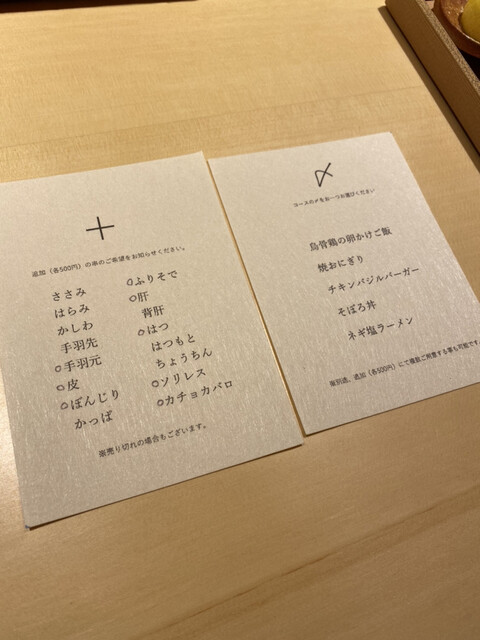 十
追加（各500円）の串のご希望をお知らせください。
ささみ
はらみ
かしわ
手羽先
○手羽元
○皮
○ぼんじり
かっぱ
○ふりそで
○肝
背肝
○はつ
はつもと
ちょうちん
○ソリレス
○カチョカバロ
※売り切れの場合もございます。
〆
コースの〆をお一つお選びください
烏骨鶏の卵かけご飯
焼おにぎり
チキンバジルバーガー
そぼろ丼
ネギ塩ラーメン
※別途、追加（各500円）にて複数ご用意する事も可能です